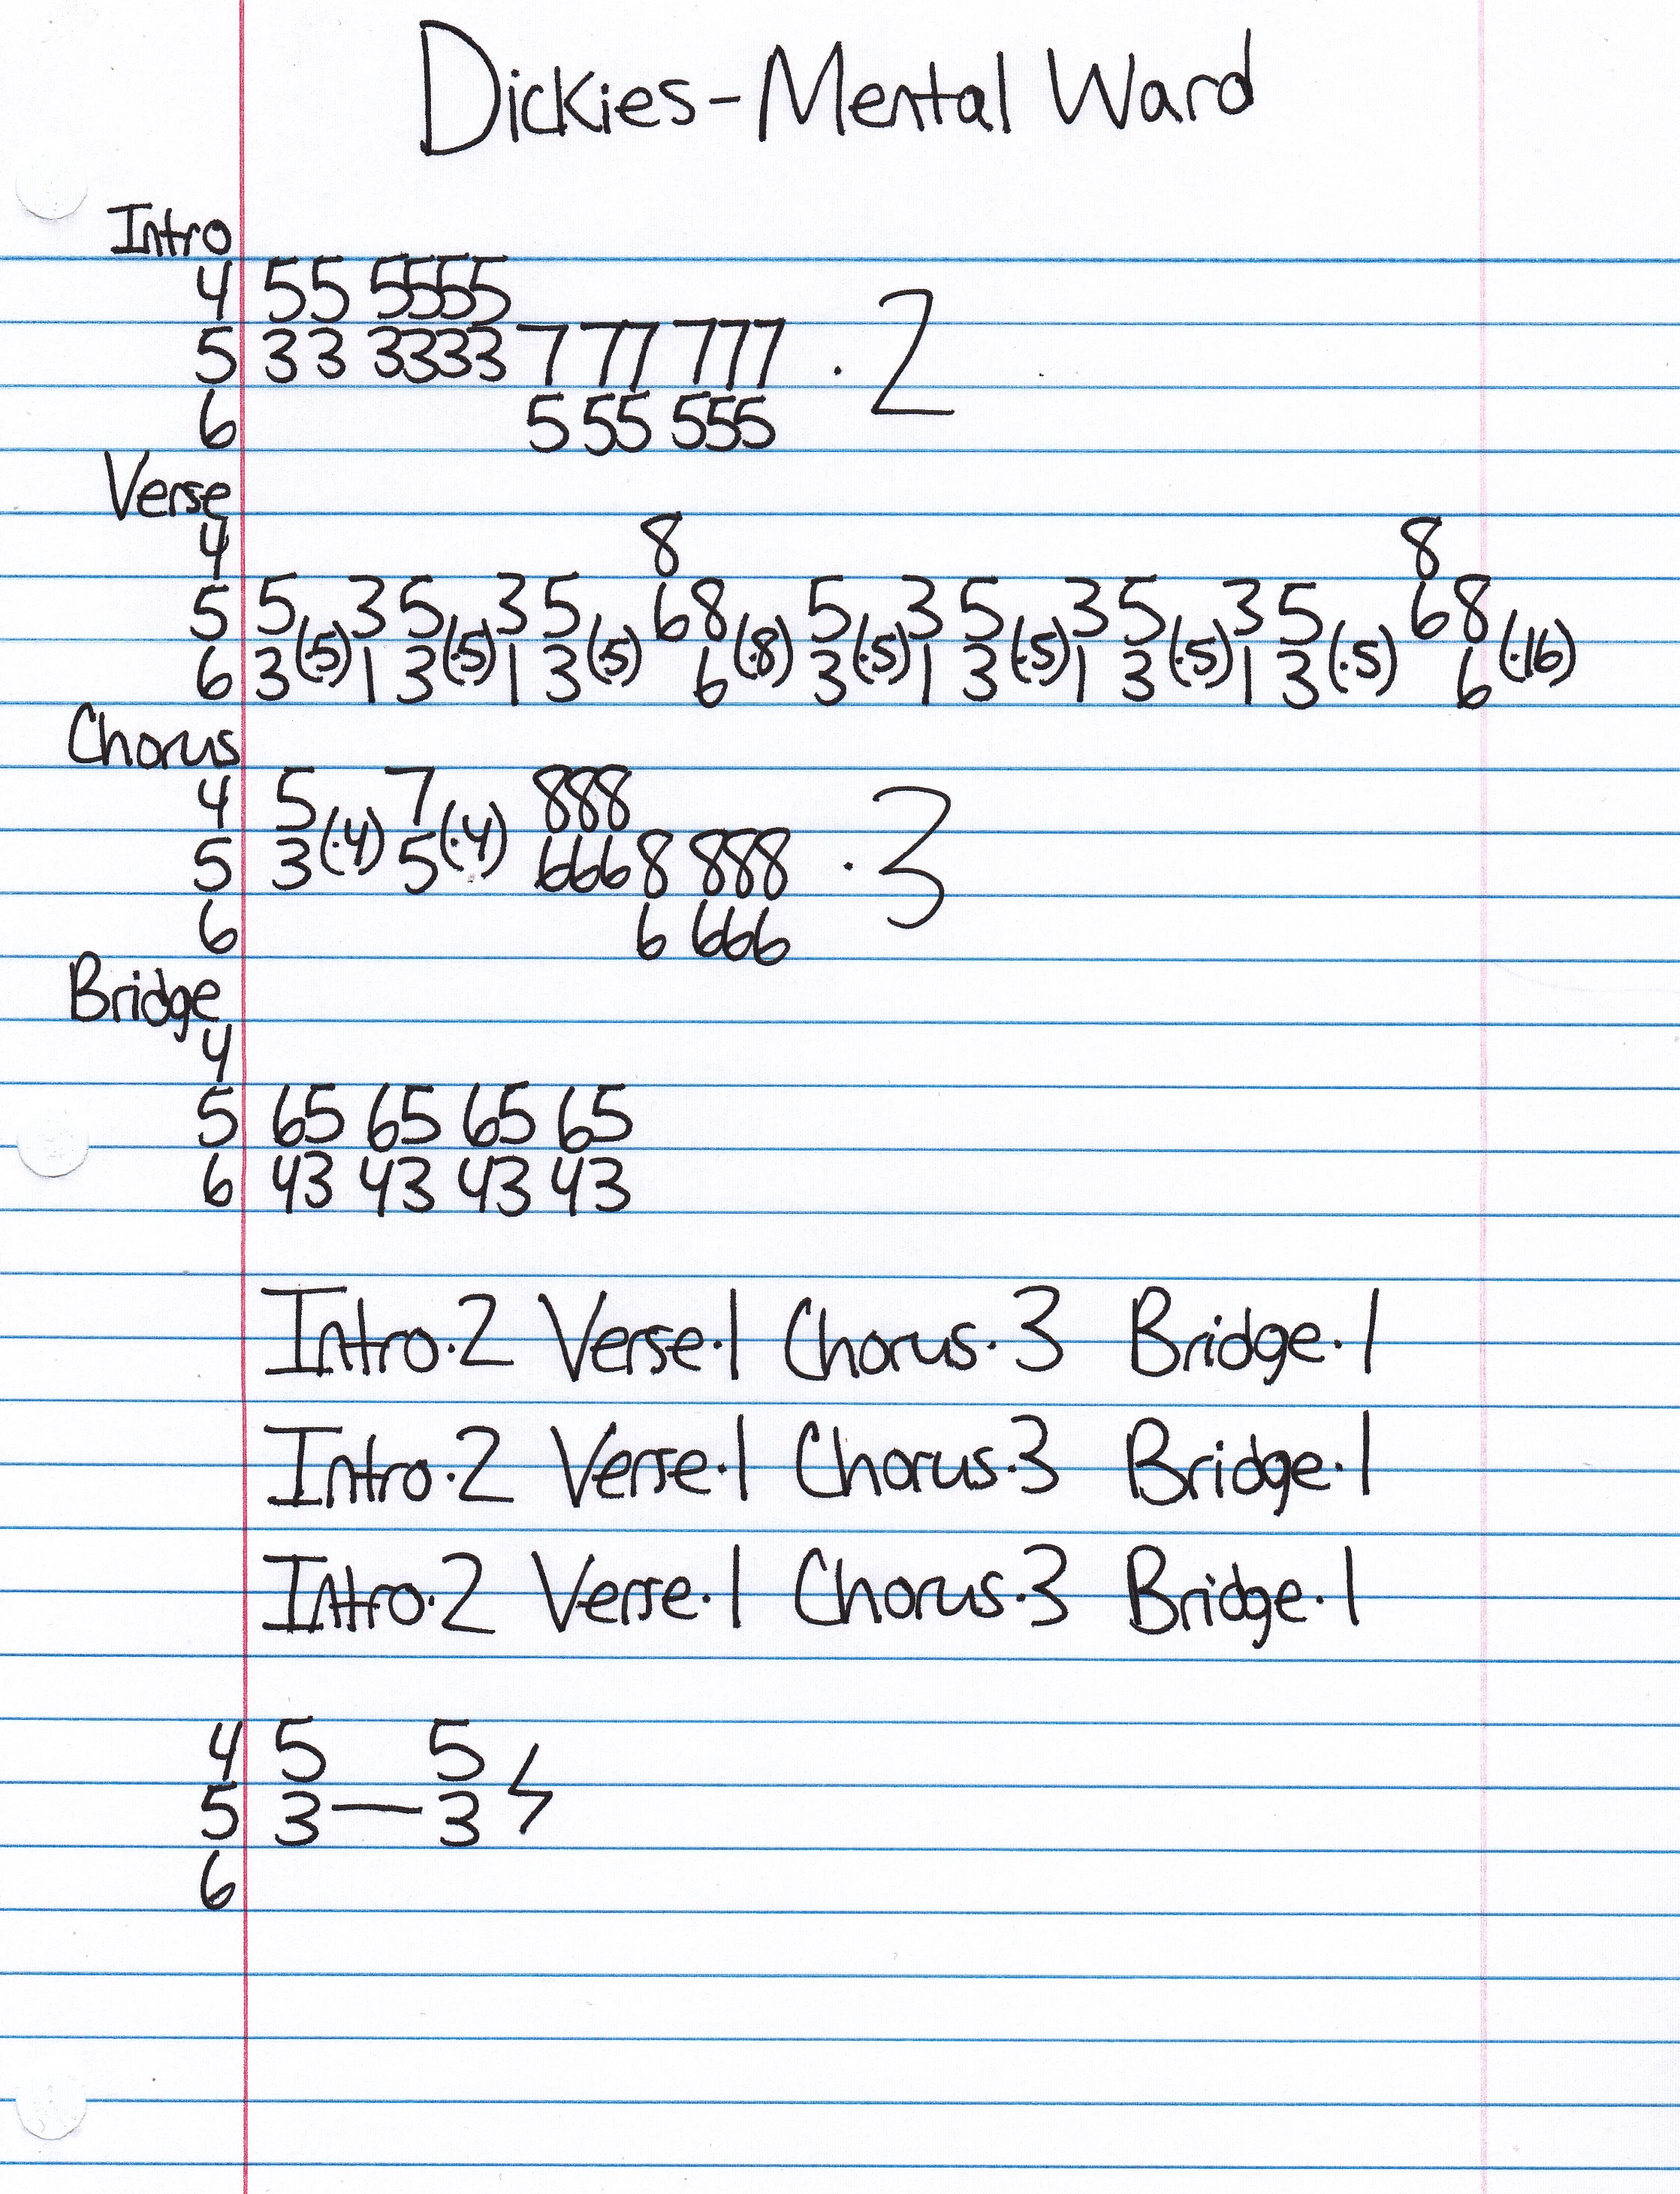 Dickies-Mental Ward
Intro
4 55 5555
5 33 3333 7 77 777 · 2
6 5 55 555
Verse
4 8 8
5 5(·5)3 5(·5)3 5(·5) 68(·8) 5(·5)3 5(·5)3 5(·5)3 5(·5) 68(·16)
6 3 1 3 1 3 6 3 1 3 1 3 1 3 6
Chorus
4 5(·4) 7(·4) 888
5 3 5 6668 888 · 3
6 6 666
Bridge
4
5 65 65 65 65
6 43 43 43 43
Intro·2 Verse·1 Chorus·3 Bridge·1
Intro·2 Verse·1 Chorus·3 Bridge·1
Intro·2 Verse·1 Chorus·3 Bridge·1
4 5 5
5 3—3
6